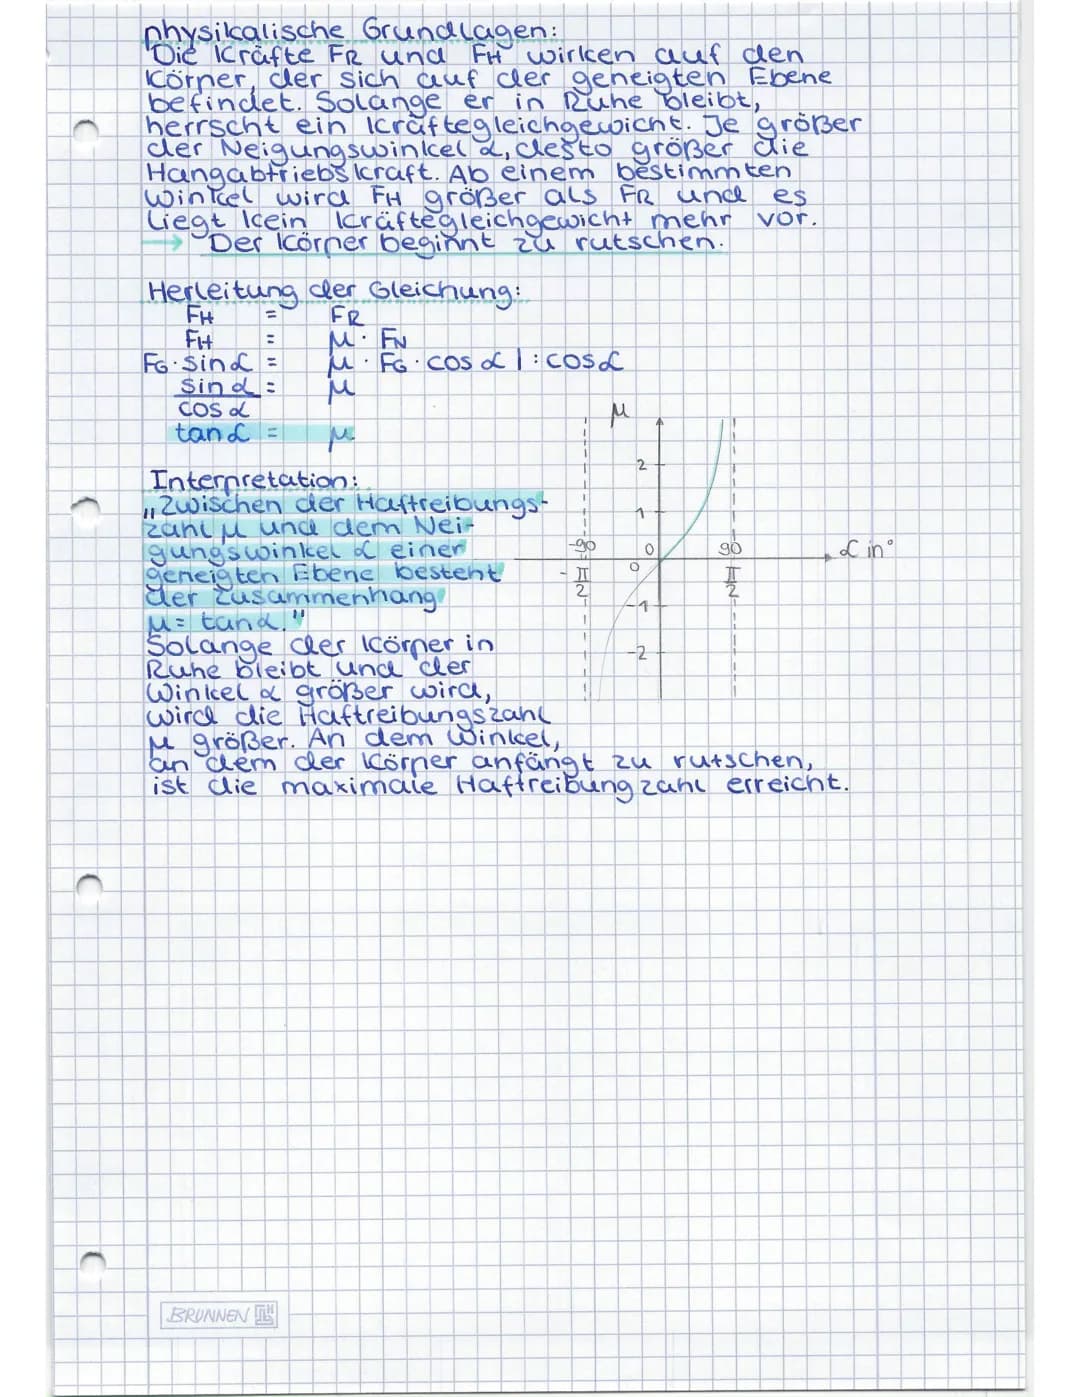 physikalische Grundlagen:
Die Kräfte FR und FH wirken auf den
Körper, der sich auf der geneigten Ebene
befindet. Solange er in Ruhe bleibt,
herrscht ein Kräftegleichgewicht. Je größer
der Neigungswinkel α, desto größer die
Hangabtriebskraft. Ab einem bestimmten
Winkel wird FH größer als FR und es
liegt kein Kräftegleichgewicht mehr vor.
→ Der Körper beginnt zu rutschen.
Herleitung der Gleichung:
FH = FR
FH = μ · FN
FG · sin α = μ · FG · cos α | : cos α
sin α = μ
cos α
tan α = μ
Interpretation:
„Zwischen der Haftreibungs-
zahl μ und dem Nei-
gungswinkel α einer
geneigten Ebene besteht
der Zusammenhang
μ = tan α."
Solange der Körper in
Ruhe bleibt und der
Winkel α größer wird,
wird die Haftreibungszahl
μ größer. An dem Winkel,
an dem der Körper anfängt zu rutschen,
ist die maximale Haftreibungzahl erreicht.
μ
2
1
-90 0 90 α in °
0
- π/2 π/2
-1
-2
BRUNNEN